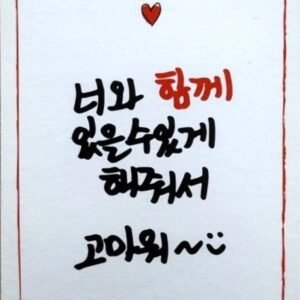 너와 함께
있을수있게
해줘서
고마워~